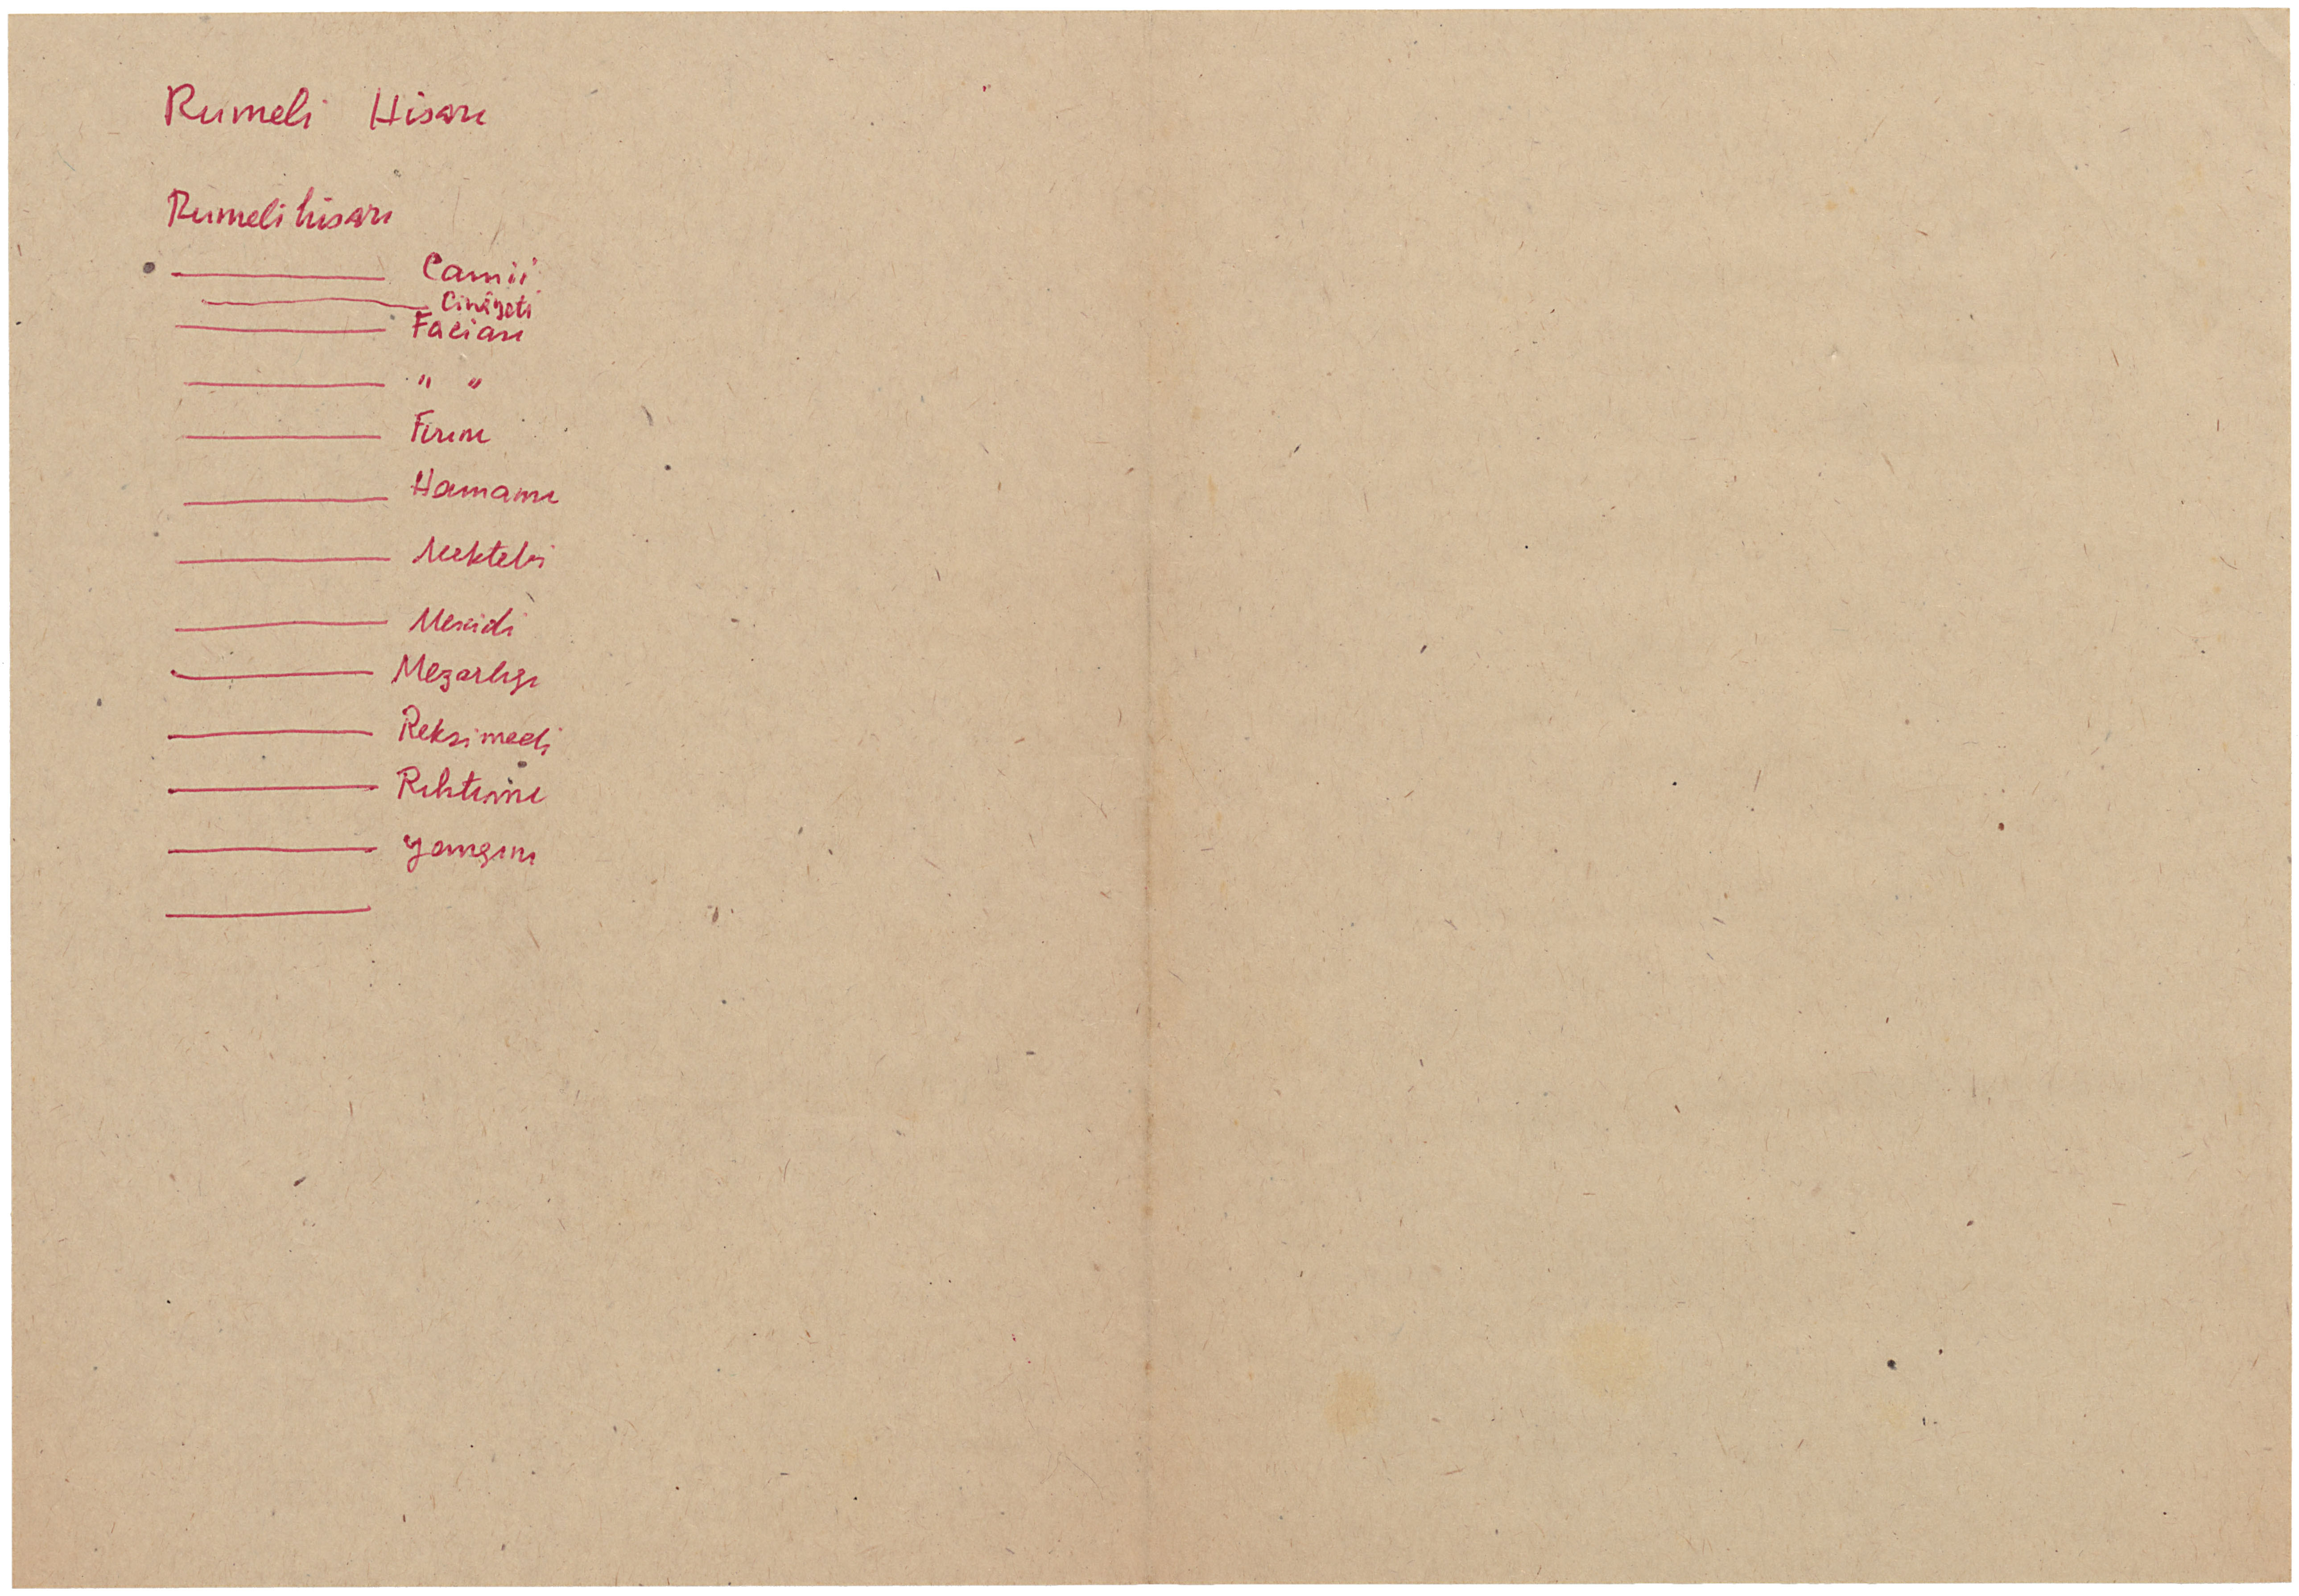 Rumeli Hisarı
Rumelihisarı
——— Camii
——— Cinâyeti
——— Faciası
——— " "
——— Fırını
——— Hamamı
——— Mektebi
——— Mescidi
——— Mezarlığı
——— 
——— Rıhtımı
——— Yangını
———